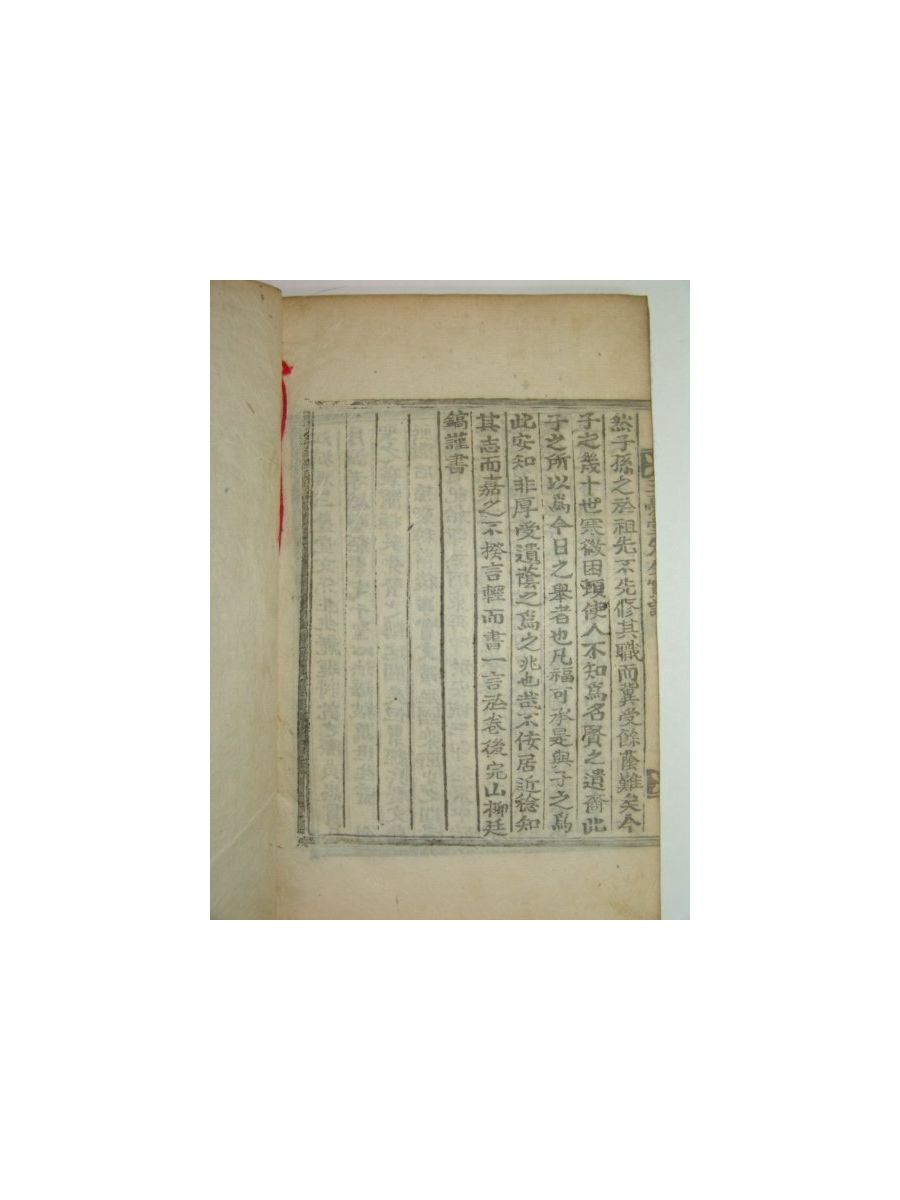 然子孫之於祖先不先修其職而冀受餘蔭難矣今
子之幾十世寒微困頓使人不知爲名賢之遺裔此
子之所以爲今日之擧者也凡福可承是與子之爲
此安知非厚受遺蔭之爲之兆也哉不侫居近稔知
其志而嘉之不揆言輕而書一言於卷後完山柳廷
鎬謹書